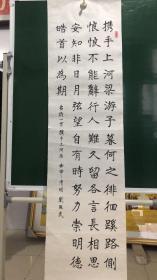 携手上河梁游子暮何之徘徊蹊路側
悢悢不能辭行人難久留各言長相思
安知非日月弦望自有時努力崇明德
皓首以為期